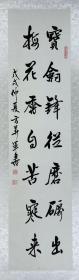 寶劍鋒從磨礪出
梅花香自苦寒來
戊戌仲夏方華军書